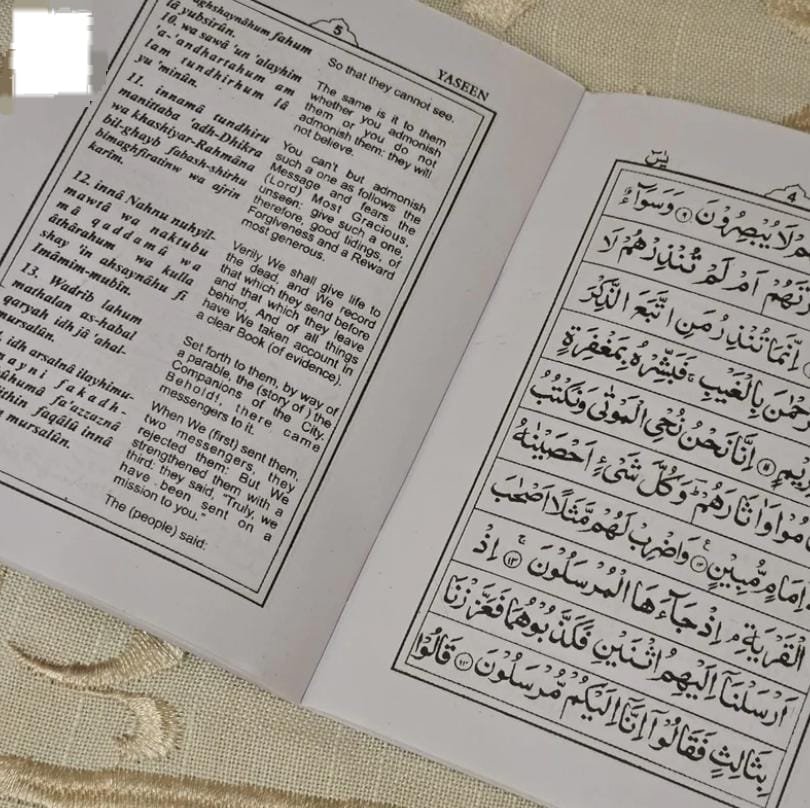 5
YASEEN
fahum
lâ yubsirûn.
10. wa sawâ 'un 'alayhim
'a-'andhartahum am
lam tundhirhum lâ
yu 'minûn.
11. innamâ tundhiru
manittaba 'adh-Dhikra
wa khashiyar-Rahmâna
bil-ghayb fabash-shirhu
bimaghfiratinw wa ajrin
karîm.
12. innâ Nahnu nuhyil-
mawtâ wa naktubu
mâ qaddamû wa
âthârahum wa kulla
shay 'in ahsaynâhu fî
Imâmim-mubîn.
13. Wadrib lahum
mathalan as-habal
qaryah idh jâ 'ahal-
mursalûn.
idh arsalnâ ilayhimu-
fakadh-
fa'azzaznâ
faqâlû innâ
mursalûn.
So that they cannot see.
The same is it to them
whether you admonish
them or you do not
admonish them: they will
not believe.
You can't but admonish
such a one as follows the
Message and fears the
(Lord) Most Gracious,
unseen: give such a one,
therefore, good tidings, of
Forgiveness and a Reward
most generous.
Verily We shall give life to
the dead, and We record
that which they send before
and that which they leave
behind, And of all things
have We taken account in
a clear Book (of evidence).
Set forth to them, by way of
a parable, the (story of) the
Companions of the City.
Behold!, there came
messengers to it.
When We (first) sent them,
two messengers, they
rejected them: But We
strengthened them with a
third: they said, "Truly, we
have been sent on a
mission to you."
The (people) said:
يٰسٓ
4
لَا يُبْصِرُوْنَ ۹ وَسَوَآءٌ
اَمْ لَمْ تُنْذِرْهُمْ لَا
اِنَّمَا تُنْذِرُ مَنِ اتَّبَعَ الذِّكْرَ
بِالْغَيْبِ ۚ فَبَشِّرْهُ بِمَغْفِرَةٍ
۱۱ اِنَّا نَحْنُ نُحْيِ الْمَوْتٰى وَنَكْتُبُ
وَاٰثَارَهُمْ ؕ وَكُلَّ شَيْءٍ اَحْصَيْنٰهُ
اِمَامٍ مُّبِيْنٍ ۱۲ وَاضْرِبْ لَهُمْ مَّثَلًا اَصْحٰبَ
الْقَرْيَةِ ۘ اِذْ جَآءَهَا الْمُرْسَلُوْنَ ۱۳ اِذْ
اَرْسَلْنَآ اِلَيْهِمُ اثْنَيْنِ فَكَذَّبُوْهُمَا فَعَزَّزْنَا
بِثَالِثٍ فَقَالُوْٓا اِنَّآ اِلَيْكُمْ مُّرْسَلُوْنَ ۱۴ قَالُوْا